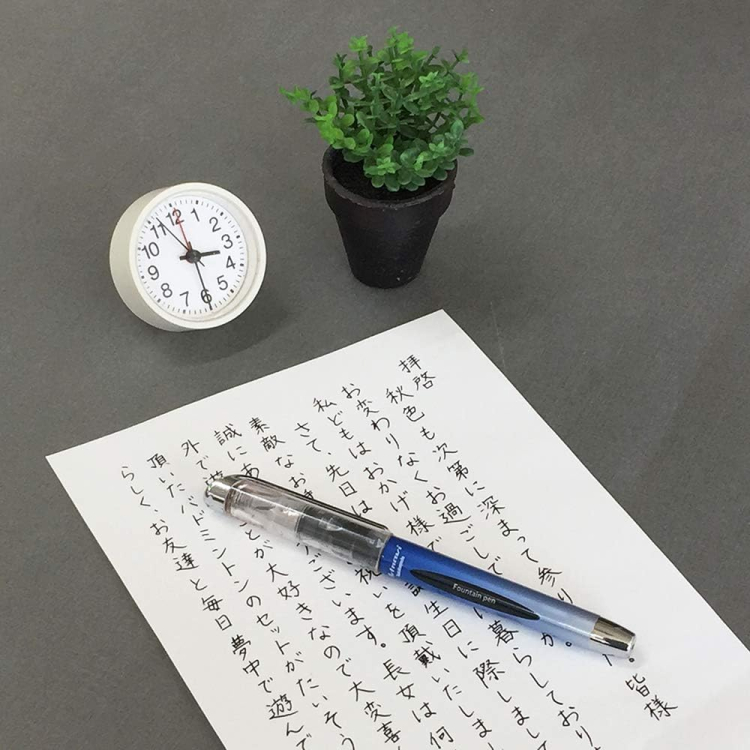 拝啓
秋色も次第に深まって参り 皆様
お変わりなくお過ごしで
私どもはおかげ様で 暮らしており
さて、先日は 生日に際しまし
素敵なお 祝いを頂戴いたしまし
誠にあ ございます。長女は何
外で ことが大好きなので大変喜
頂いたバドミントンのセットがたいそう
らしく、お友達と毎日夢中で遊んで
12
1
2
3
4
5
6
7
8
9
10
11
Fountain pen